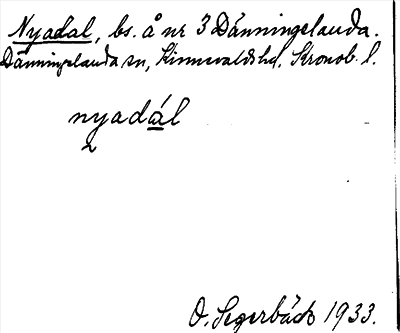 Nyadal, bs. å nr 3 Dänningelanda.
Dänningelanda sn, Kinnevalds hd. Kronob. l.
nyadál
2
O. Segerbäck 1933.